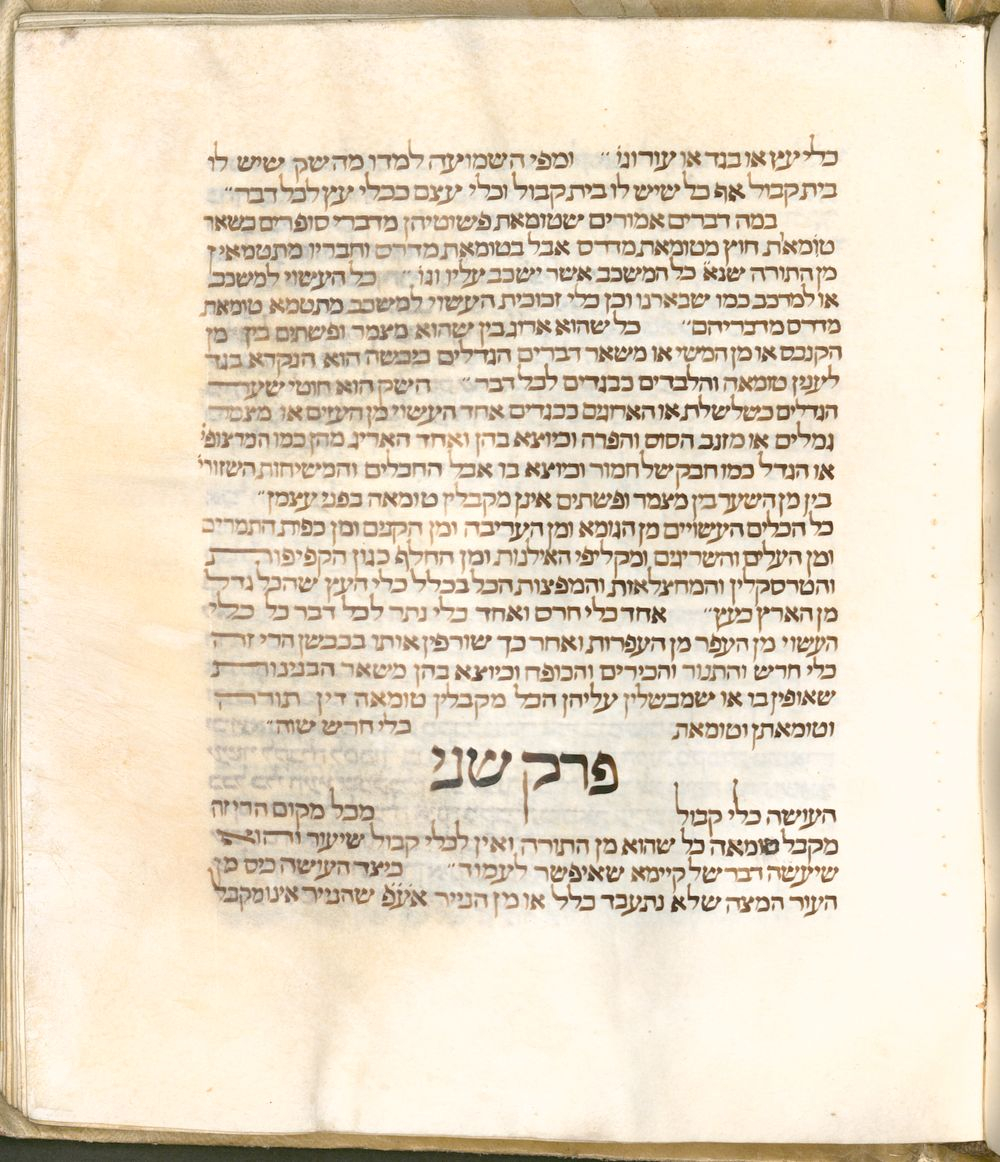 כלי עץ או בגד או עור וגו׳ ״ ומפי השמועה למדו מה שק שיש לו
בית קבול אף כל שיש לו בית קבול וכלי עצם ככלי עץ לכל דבר״
במה דברים אמורים שטומאת פשוטיהן מדברי סופרים בשאר
טומאת חוץ מטומאת מדרס אבל בטומאת מדרס וחבריו מתטמאין
מן התורה שנא׳ כל המשכב אשר ישכב עליו וגו׳ ״ כל העשוי למשכב
או למרכב כמו שבארנו וכן כלי זכוכית העשוי למשכב מתטמא טומאת
מדרס מדבריהם״ כל שהוא ארוג בין שהוא מצמר ופשתים בין מן
הקנבס או מן המשי או משאר דברים הגדלים ביבשה הוא הנקרא בגד
לענין טומאה והלבדים כבגדים לכל דבר ״ השק הוא חוטי שערה
הגדלים כשלשלת או הארוגים כבגדים אחד העשוי מן העזים או מצמר
גמלים או מזנב הסוס והפרה וכיוצא בהן ואחד האריג מהן כמו המרצופי׳
או הגדל כמו חבק של חמור וכיוצא בו אבל החבלים והמשיחות השזורי׳
בין מן השער בין מצמר ופשתים אינן מקבלין טומאה בפני עצמן״
כל הכלים העשויים מן הגומא ומן העריבה ומן הקנים ומן כפות התמרים
ומן העלים והשריגים ומקליפי האילנות ומן החלף כגון הקפיפות
והטרסקלין והמחצלאות והמפצות הכל בכלל כלי העץ שהכל גדל
מן הארץ כעץ״ אחד כלי חרס ואחד כלי נתר לכל דבר כל כלי
העשוי מן העפר מן העפרות ואחר כך שורפין אותו בכבשן הרי זה
כלי חרש והתנור והכירים והכופח וכיוצא בהן משאר הבנינות
שאופין בו או שמבשלין עליהן הכל מקבלין טומאה דין תורה
וטומאתן וטומאת כלי חרש שוה״
פרק שני
העושה כלי קבול מכל מקום הרי זה
מקבל טומאה כל שהוא מן התורה ואין לכלי קבול שיעור והוא
שיעשה דבר של קיימא שאיפשר לעמוד״ כיצד העושה כיס מן
העור המצה שלא נתעבד כלל או מן הנייר אע״פ שהנייר אינו מקבל